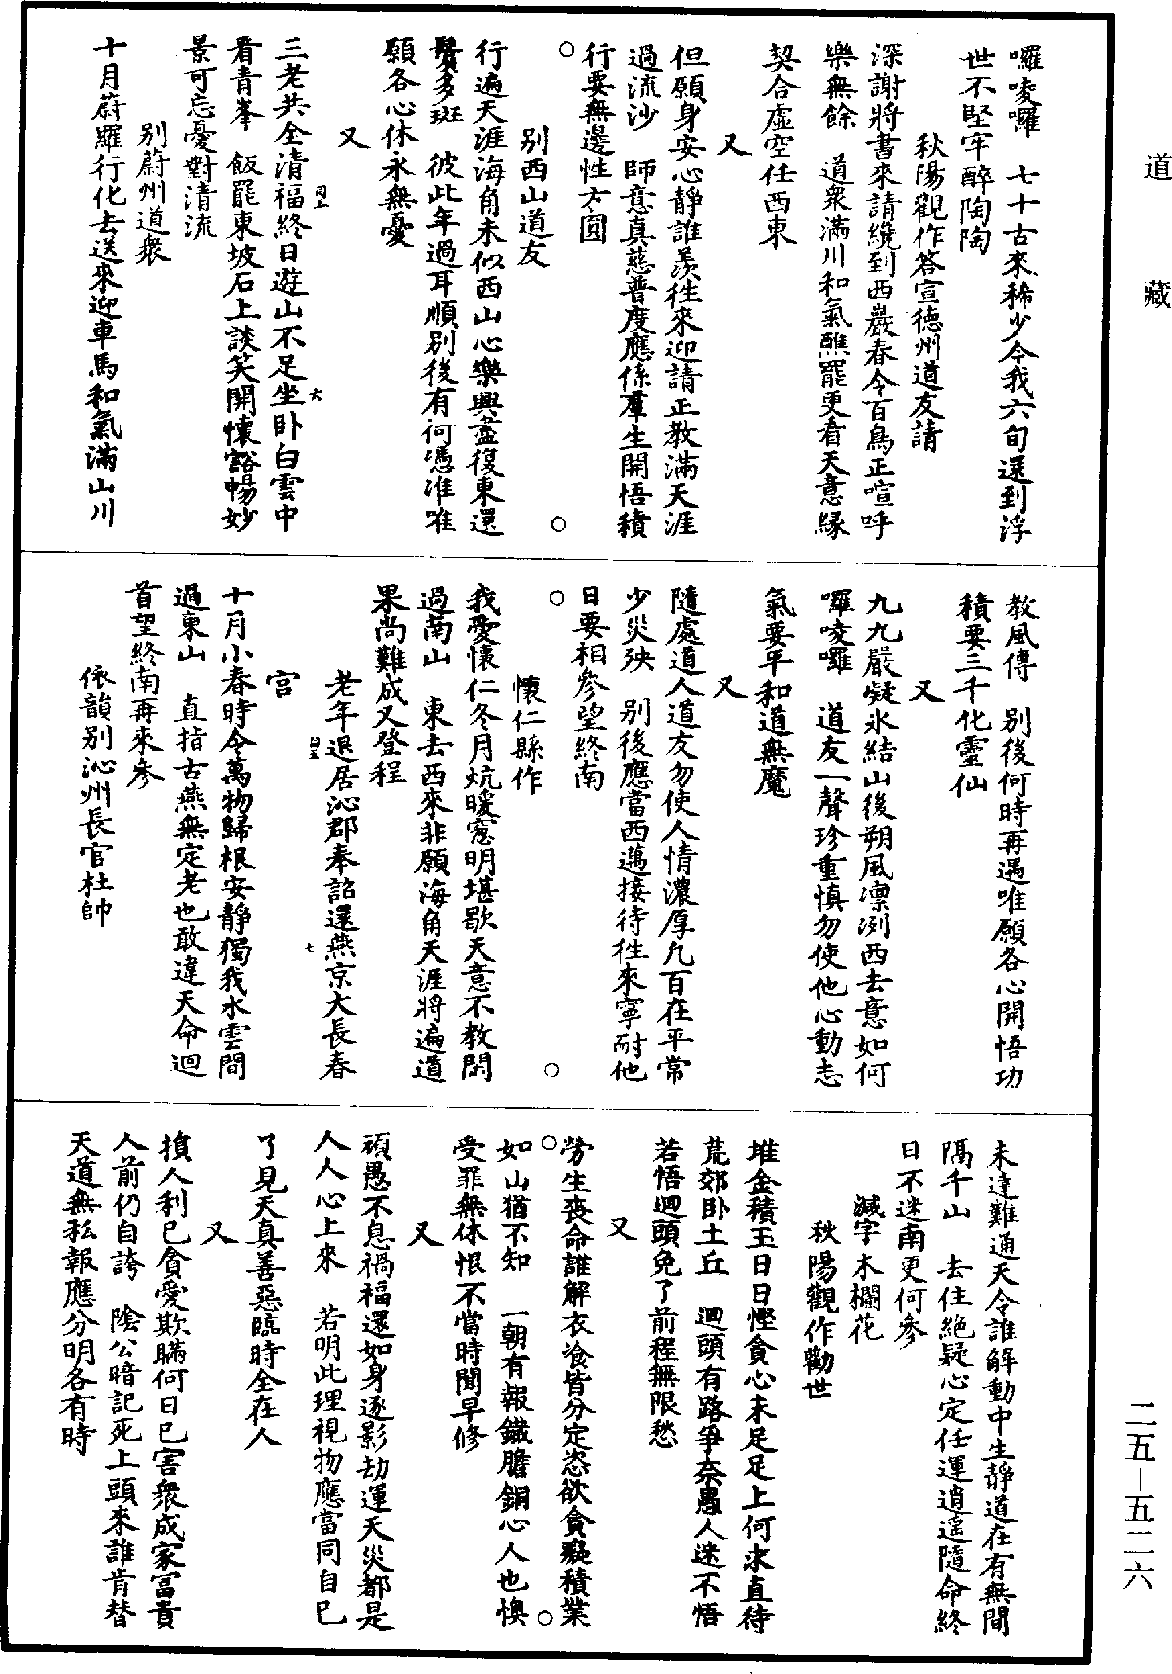 道藏
囉唆囉　七十古來稀少今我六旬還到浮
世不堅牢醉陶陶
秋陽觀作答宣德州道友請
深謝將書來請纔到西巖春今百鳥正喧呼
樂無餘　道衆滿川和氣醮罷更看天意緣
契合虛空任西東
又
但願身安心靜誰羨徃來迎請正教滿天涯
過流沙　師意真慈普度應係羣生開悟積
行要無邊性方圓
別西山道友
行遍天涯海角未似西山心樂興盡復東還
鬢多斑　彼此年過耳順別後有何憑准唯
願各心休永無憂
又
三老共全清福終日遊山不足坐卧白雲中
看青峯　飯罷東坡石上談笑開懷豁暢妙
景可忘憂對清流
別蔚州道衆
十月蔚羅行化去送來迎車馬和氣滿山川
教風傳　別後何時再遇唯願各心開悟功
積要三千化靈仙
又
九九嚴凝氷結山後朔風凜冽西去意如何
囉唆囉　道友一聲珍重慎勿使他心動志
氣要平和道無魔
又
隨處道人道友勿使人情濃厚凡百在平常
少災殃　別後應當西邁接待徃來寧耐他
日要相參望終南
懷仁縣作
我愛懷仁冬月炕暖窻明堪歇天意不教閑
過南山　東去西來非願海角天涯將遍道
果尚難成又登程
老年退居沁郡奉詔還燕京大長春
宮
十月小春時令萬物歸根安靜獨我水雲間
過東山　直指古燕無定老也敢違天命迴
首望終南再來參
依韻別沁州長官杜帥
未達難通天令誰解動中生靜道在有無間
隔千山　去住絕疑心定任運逍遥隨命終
日不迷南更何參
減字木欄花
秋陽觀作勸世
堆金積玉日日慳貪心未足足上何求直待
荒郊卧土丘　迴頭有路爭奈愚人迷不悟
若悟迴頭免了前程無限愁
又
勞生喪命誰解衣飡皆分定恣欲貪癡積業
如山猶不知　一朝有報鐵膽銅心人也懊
受罪無休恨不當時聞早修
又
頑愚不息禍福還如身逐影劫運天災都是
人人心上來　若明此理視物應當同自己
了見天真善惡臨時全在人
又
損人利己貪愛欺瞞何日已害衆成家冨貴
人前仍自誇　隂公暗記死上頭來誰肯替
天道無私報應分明各有時
二五—五二六